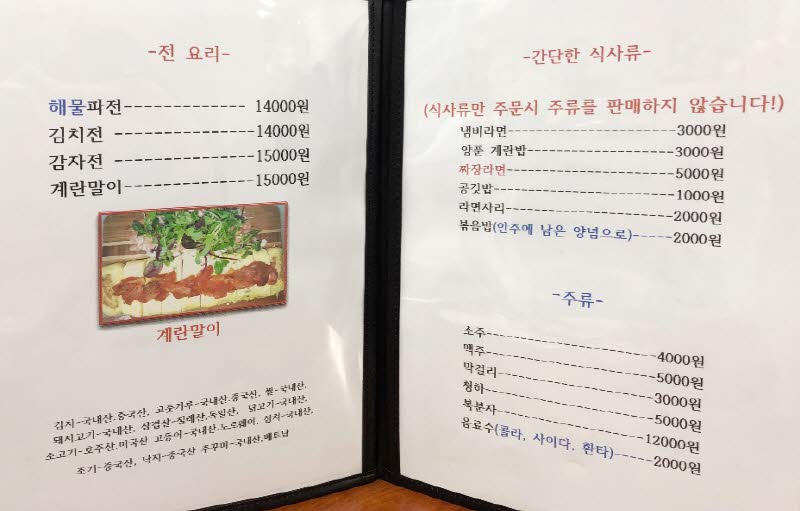 -전 요리-
해물파전------------- 14000원
김치전 --------------- 14000원
감자전 --------------- 15000원
계란말이-------------- 15000원
계란말이
김치-국내산.중국산, 고춧가루-국내산.중국산, 쌀-국내산.
돼지고기-국내산, 삼겹살-칠레산.독일산, 닭고기-국내산.
소고기-호주산.미국산 고등어-국내산.노르웨이. 삼치-국내산.
조기-중국산, 낙지-중국산 쭈꾸미-국내산.베트남
-간단한 식사류-
(식사류만 주문시 주류를 판매하지 않습니다!)
냄비라면-------------------------3000원
양푼 계란밥----------------------3000원
짜장라면-------------------------5000원
공깃밥---------------------------1000원
라면사리-------------------------2000원
볶음밥(안주에 남은 양념으로)-----2000원
-주류-
소주-------------------------4000원
맥주-------------------------5000원
막걸리-----------------------3000원
청하-------------------------5000원
복분자-----------------------12000원
음료수(콜라, 사이다. 환타)------2000원